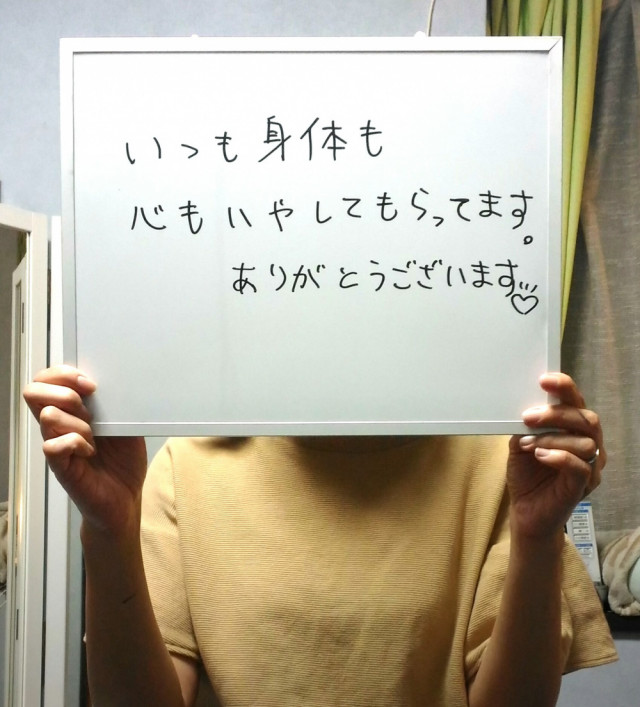 いつも身体も
心もいやしてもらってます。
ありがとうございます♡